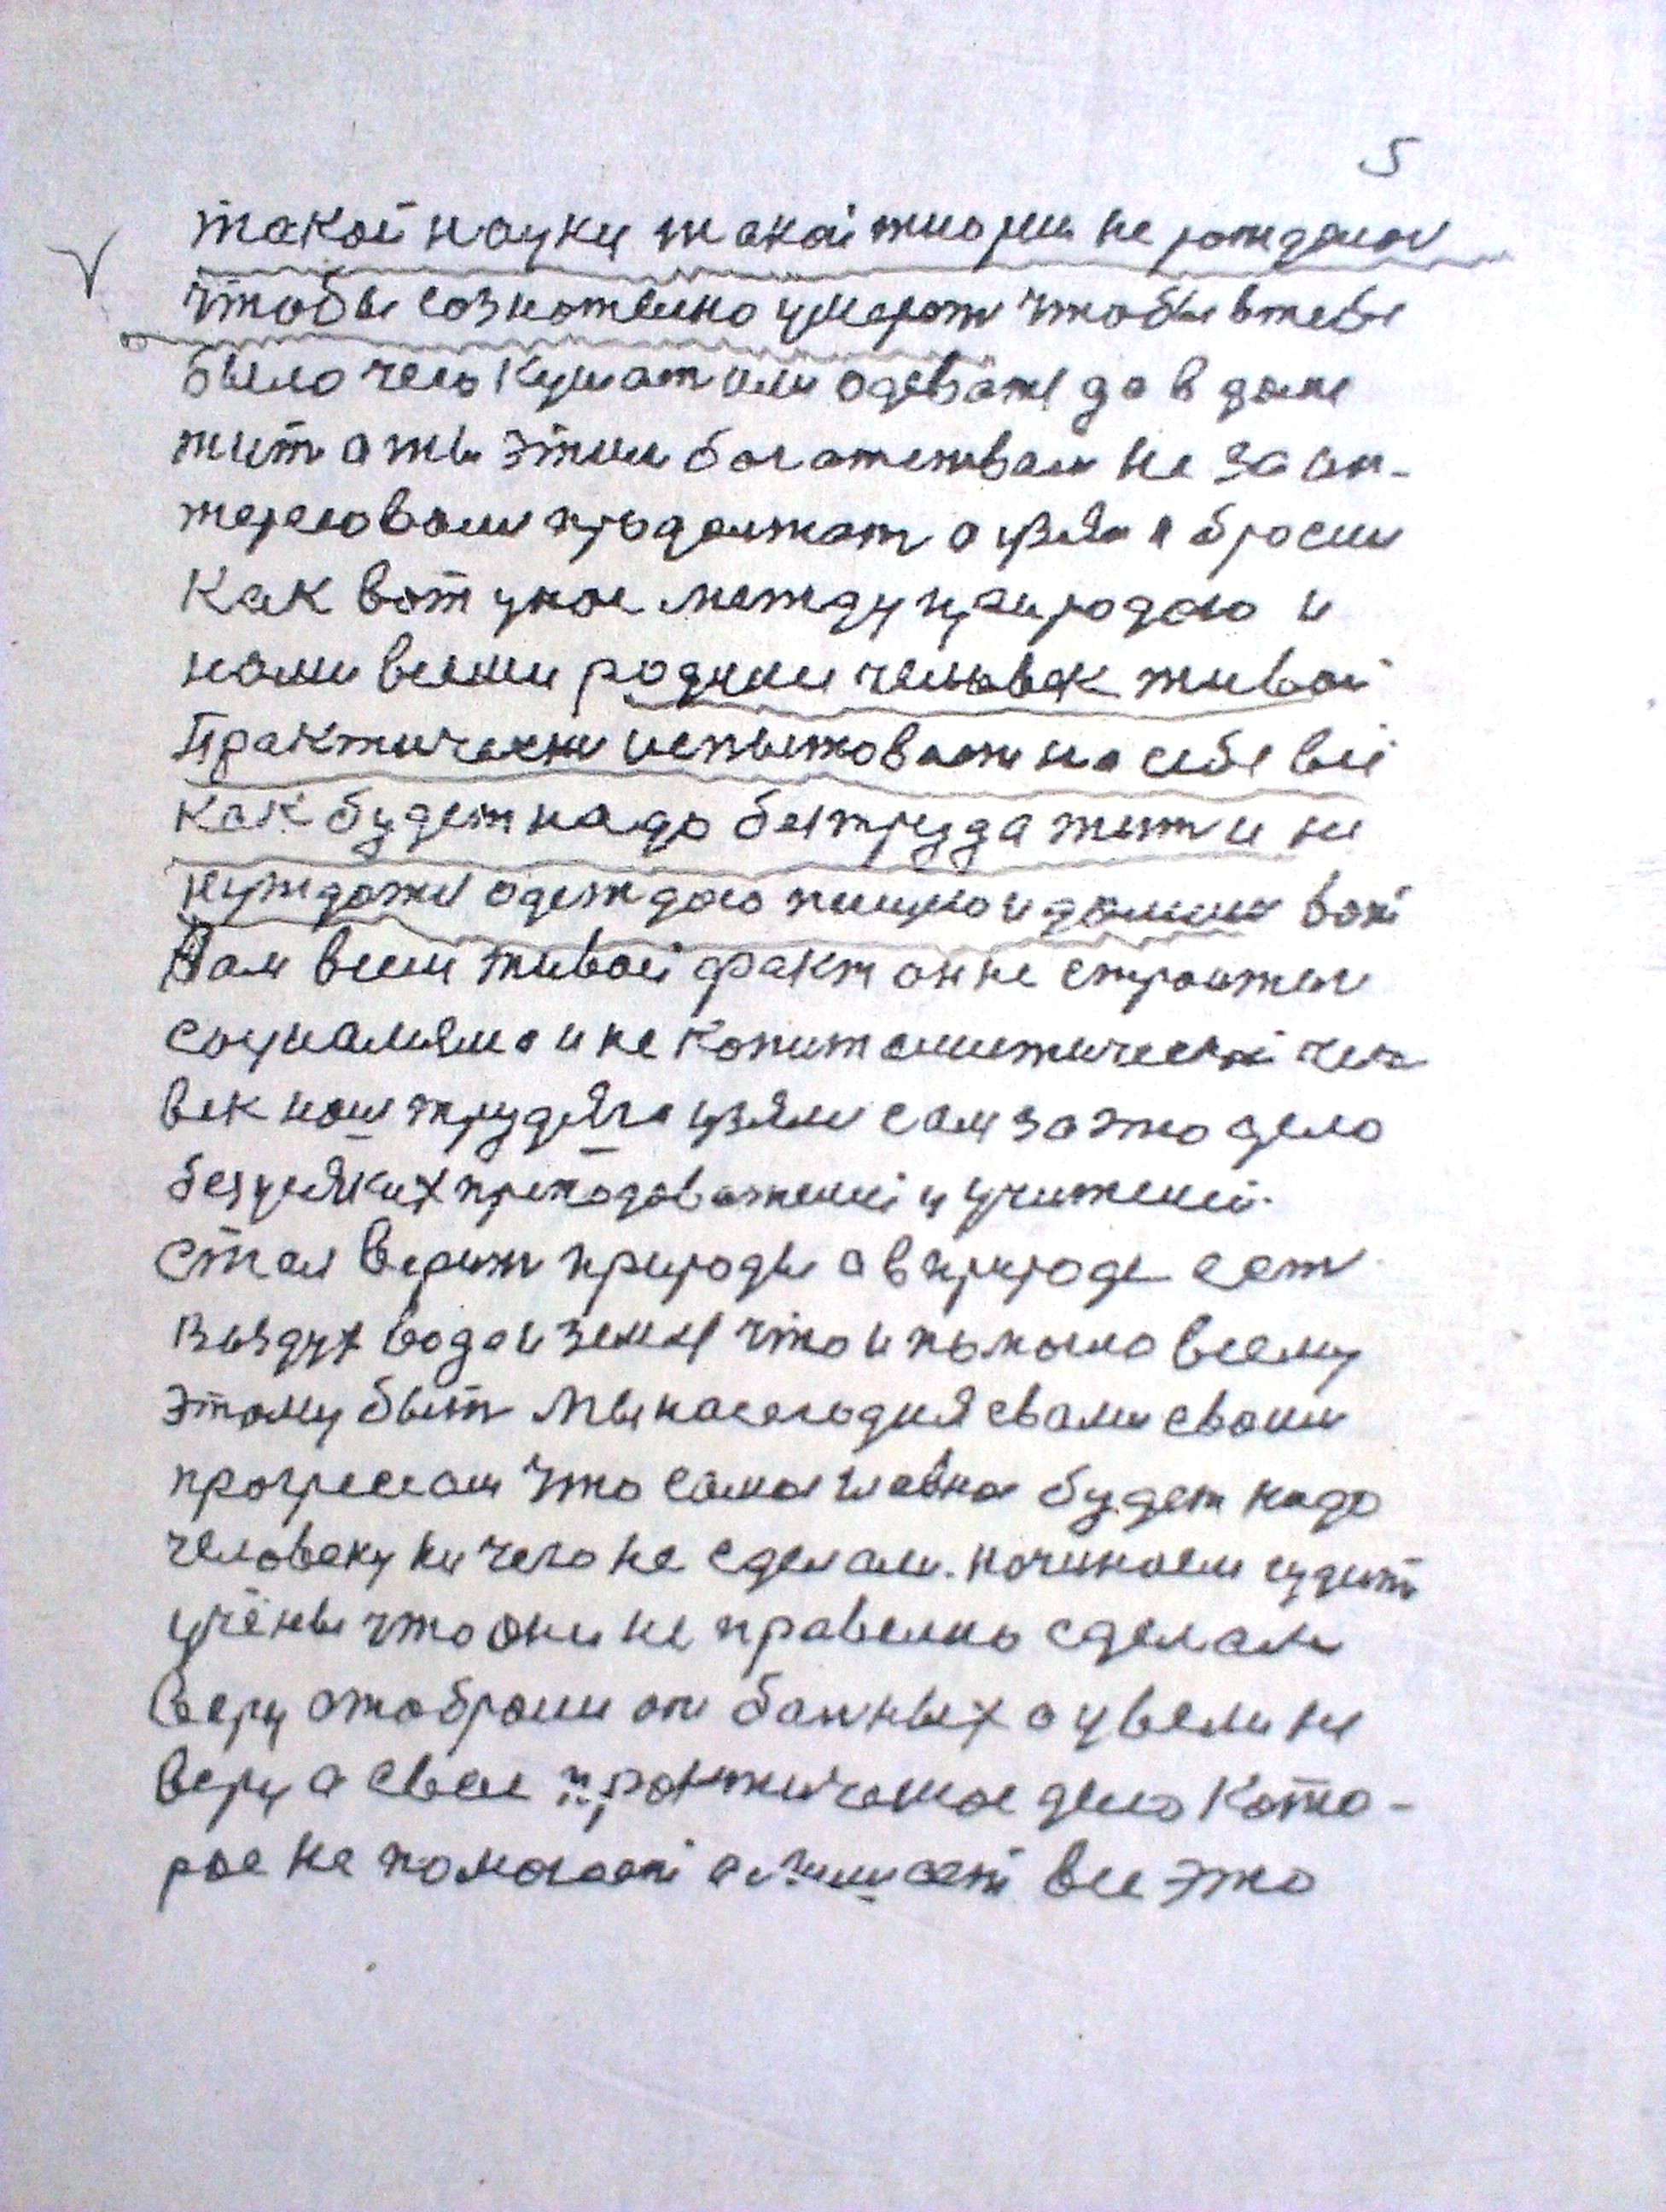 5
такой науки такой жизни не рождалось
чтобы сознательно умерат чтобы в тебе
было чего кушат или одеватся да в доме
жит а ты этим богатетвам не заин-
тересовался продолжат а узял и бросил
как вот у нас между природою и
нами всеми родился человек живой
Практически испытоват на себе всё
как будет надо без труда жит и не
нуждатся одеждою пищаю и домам вот
Вам всем живой факт он не строител
социализма и не копиталистический чело
век наш трудяга узялся сам за это дело
без усяких преподователей и учителей
Стал верит природы а в природе ест
Воздух вода и земля что и помогло всему
этому быт Мы на сегодня с вами своим
прогрессам что самое главное будет надо
человеку ни чего не сделали. начинаем судит
учёных что они не правелно сделали
Веру отобрали от бальных а увели не
веру а свое практическое дело кото-
рое не помогает а лишает все это